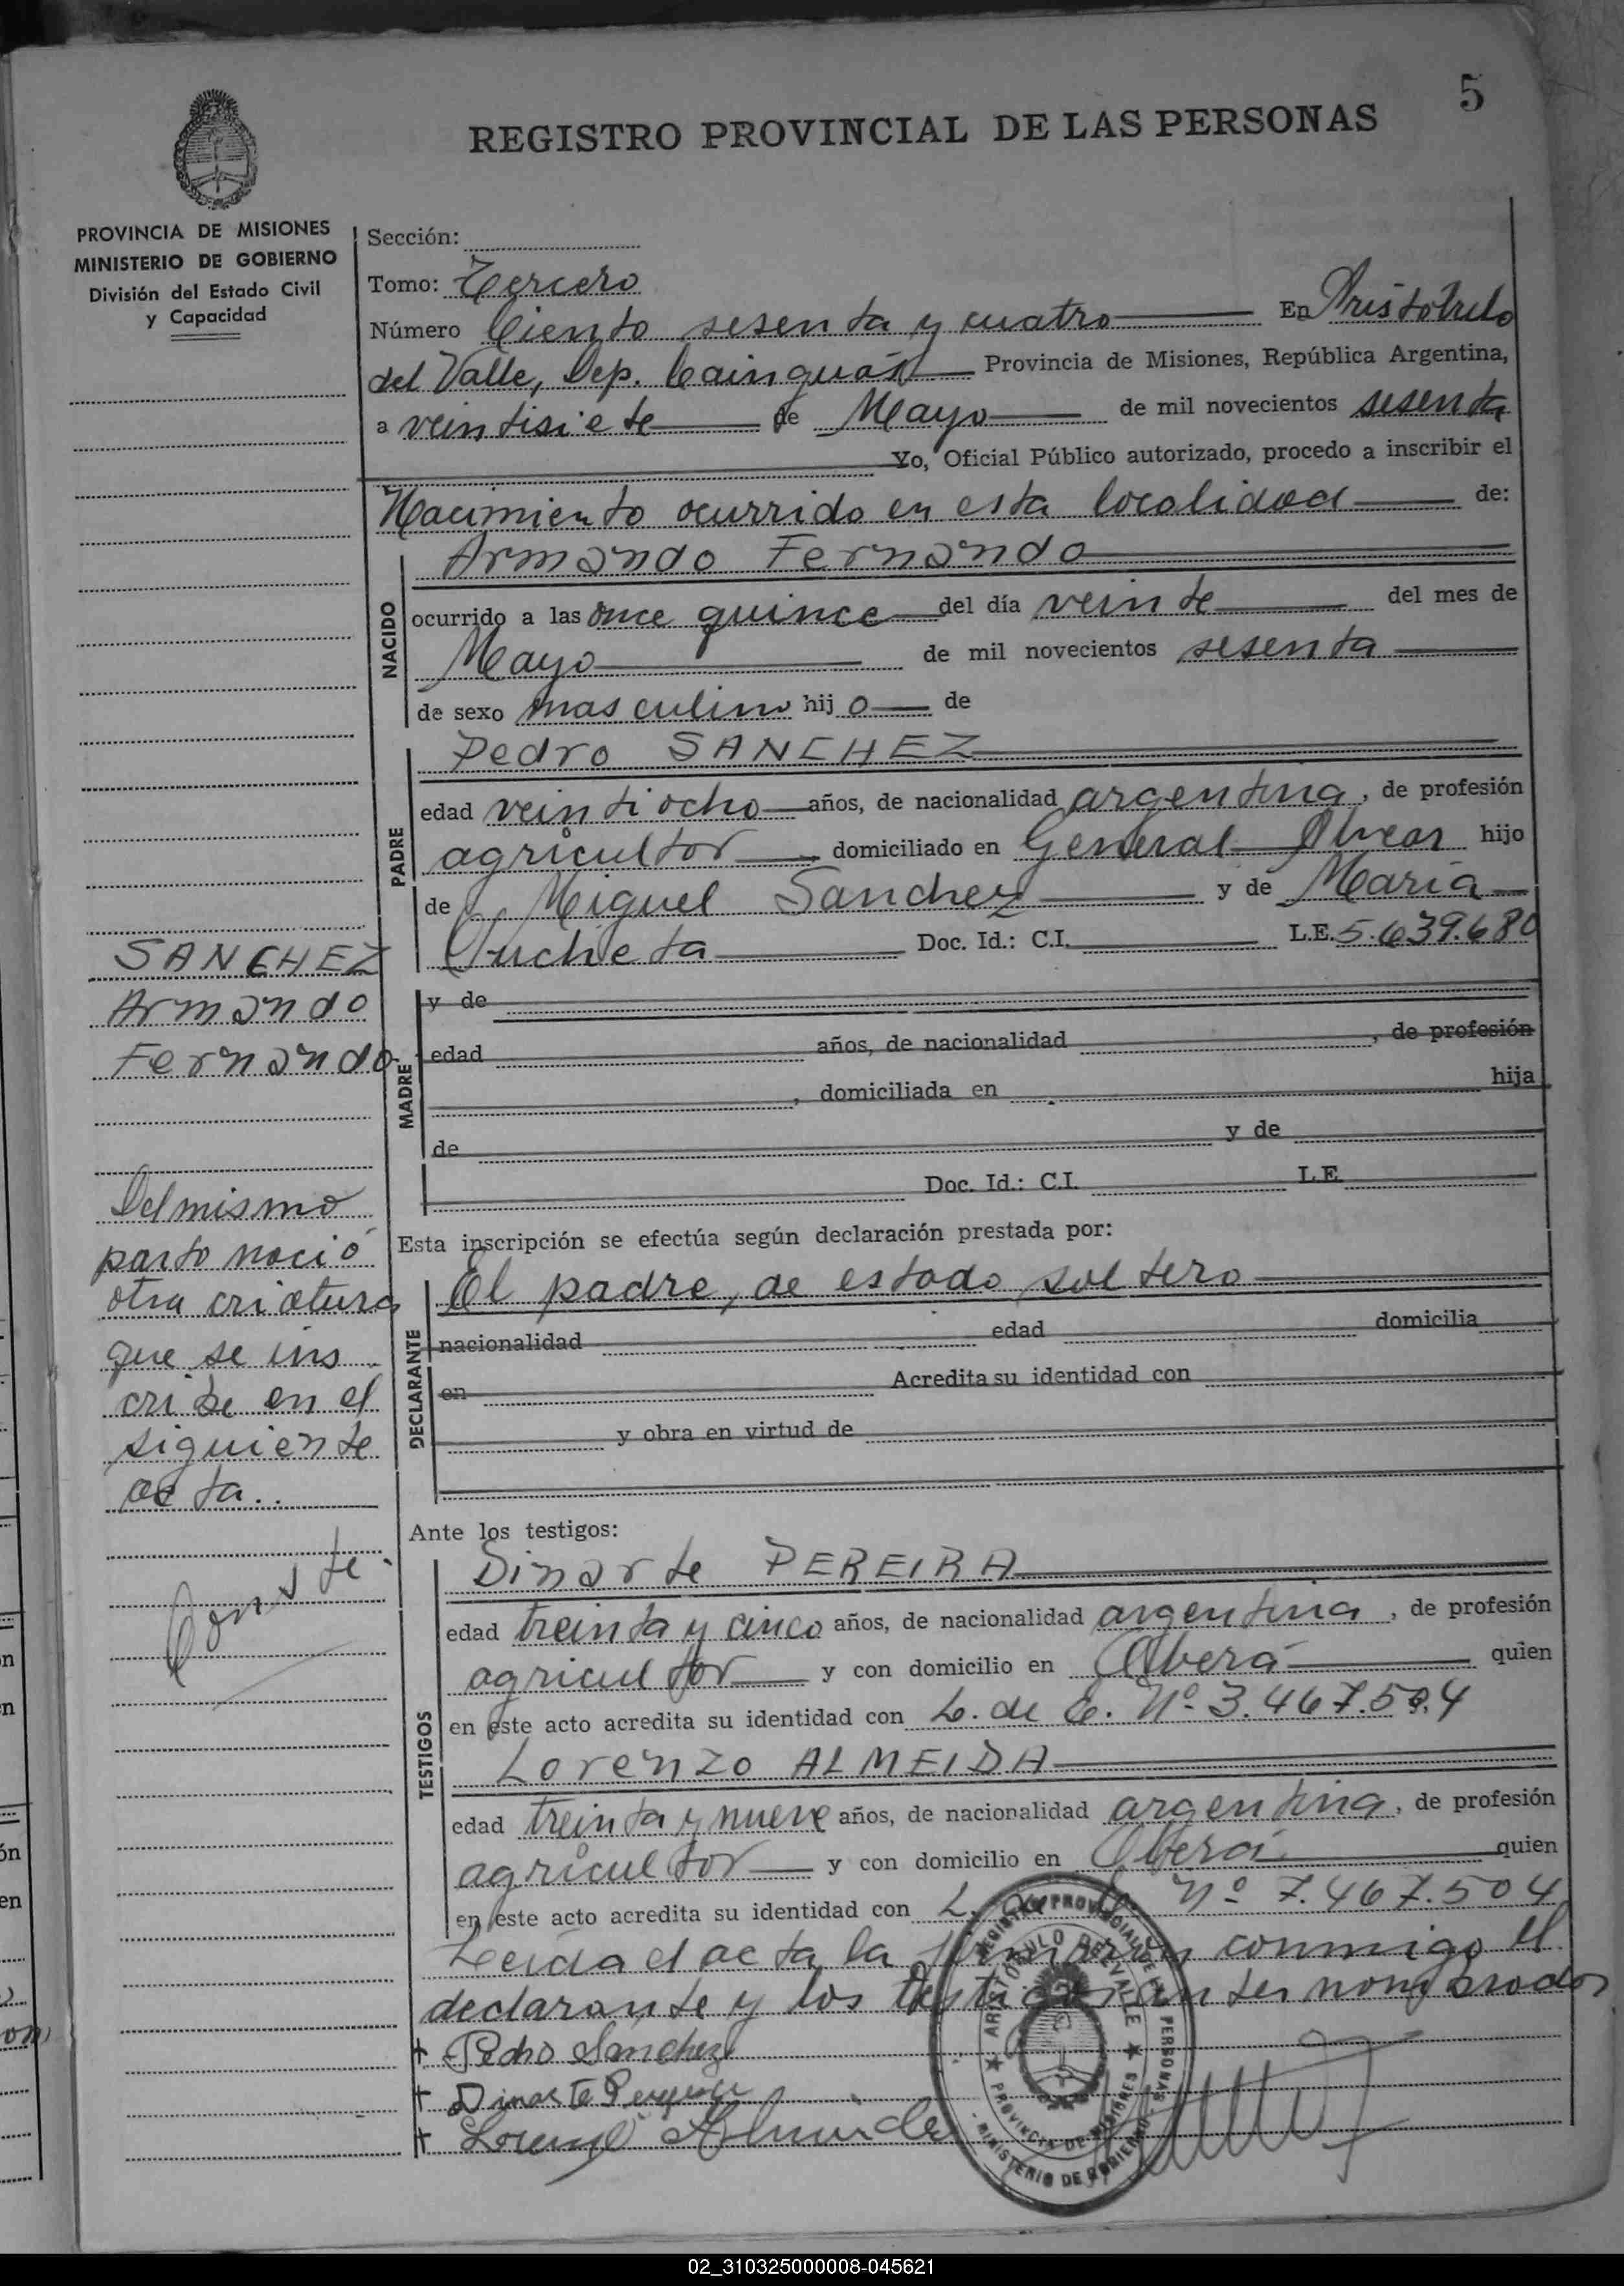 5
REGISTRO PROVINCIAL DE LAS PERSONAS
PROVINCIA DE MISIONES
MINISTERIO DE GOBIERNO
División del Estado Civil
y Capacidad
Sección:
Tomo: Tercero
Número Ciento sesenta y cuatro En Aristóbulo
del Valle, Dep. Cainguás Provincia de Misiones, República Argentina,
a veintisiete de Mayo de mil novecientos sesenta
Yo, Oficial Público autorizado, procedo a inscribir el
Nacimiento ocurrido en esta localidad de:
NACIDO
Armando Fernando
ocurrido a las once quince del día veinte del mes de
Mayo de mil novecientos sesenta
de sexo masculino hijo de
PADRE
Pedro SANCHEZ
edad veintiocho años, de nacionalidad argentina, de profesión
agricultor domiciliado en General Alvear hijo
de Miguel Sanchez y de María
Doc. Id.: C.I. L.E. 5.639.680
SANCHEZ
Armando
Fernando
MADRE
y de
edad años, de nacionalidad , de profesión
, domiciliada en hija
de y de
Doc. Id.: C.I. L.E.
Del mismo
parto nació
otra criatura
que se ins
cribe en el
siguiente
acta..
Conste.
Esta inscripción se efectúa según declaración prestada por:
DECLARANTE
El padre, de estado soltero
nacionalidad edad domicilia
en Acredita su identidad con
y obra en virtud de
Ante los testigos:
TESTIGOS
Dinarte PEREIRA
edad treinta y cinco años, de nacionalidad argentina, de profesión
agricultor y con domicilio en Oberá quien
en este acto acredita su identidad con L. de E. Nº 3.467.504
Lorenzo ALMEIDA
edad treinta y nueve años, de nacionalidad argentina, de profesión
agricultor y con domicilio en Oberá quien
en este acto acredita su identidad con L. de E. Nº 7.467.504
Leída el acta la firmaron conmigo el
declarante y los testigos antes nombrados
+ Pedro Sánchez
+ Dinarte Pereira
+ Lorenzo Almeida
REGISTRO PROVINCIAL DE LAS PERSONAS
ARISTOBULO DEL VALLE
PROVINCIA DE MISIONES
MINISTERIO DE GOBIERNO
02_310325000008-045621